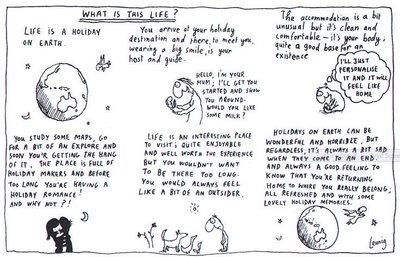 WHAT IS THIS LIFE?
LIFE IS A HOLIDAY
ON EARTH.
You arrive at your holiday
destination and there, to meet you,
wearing a big smile, is your
host and guide.
HELLO, I'M YOUR
MUM; I'LL GET YOU
STARTED AND SHOW
YOU AROUND.
WOULD YOU LIKE
SOME MILK?
The accommodation is a bit
unusual but it's clean and
comfortable – it's your body;
quite a good base for an
existence
I'LL JUST
PERSONALISE
IT AND IT WILL
FEEL LIKE
HOME
YOU STUDY SOME MAPS, GO
FOR A BIT OF AN EXPLORE AND
SOON YOU'RE GETTING THE HANG
OF IT. THE PLACE IS FULL OF
HOLIDAY MAKERS AND BEFORE
TOO LONG YOU'RE HAVING A
HOLIDAY ROMANCE!
AND WHY NOT?!
LIFE IS AN INTERESTING PLACE
TO VISIT; QUITE ENJOYABLE
AND WELL WORTH THE EXPERIENCE
BUT YOU WOULDN'T WANT
TO BE THERE TOO LONG.
YOU WOULD ALWAYS FEEL
LIKE A BIT OF AN OUTSIDER.
HOLIDAYS ON EARTH CAN BE
WONDERFUL AND HORRIBLE, BUT
REGARDLESS, IT'S ALWAYS A BIT SAD
WHEN THEY COME TO AN END.
AND ALWAYS A GOOD FEELING TO
KNOW THAT YOU'RE RETURNING
HOME TO WHERE YOU REALLY BELONG,
ALL REFRESHED AND WITH SOME
LOVELY HOLIDAY MEMORIES.
Leunig